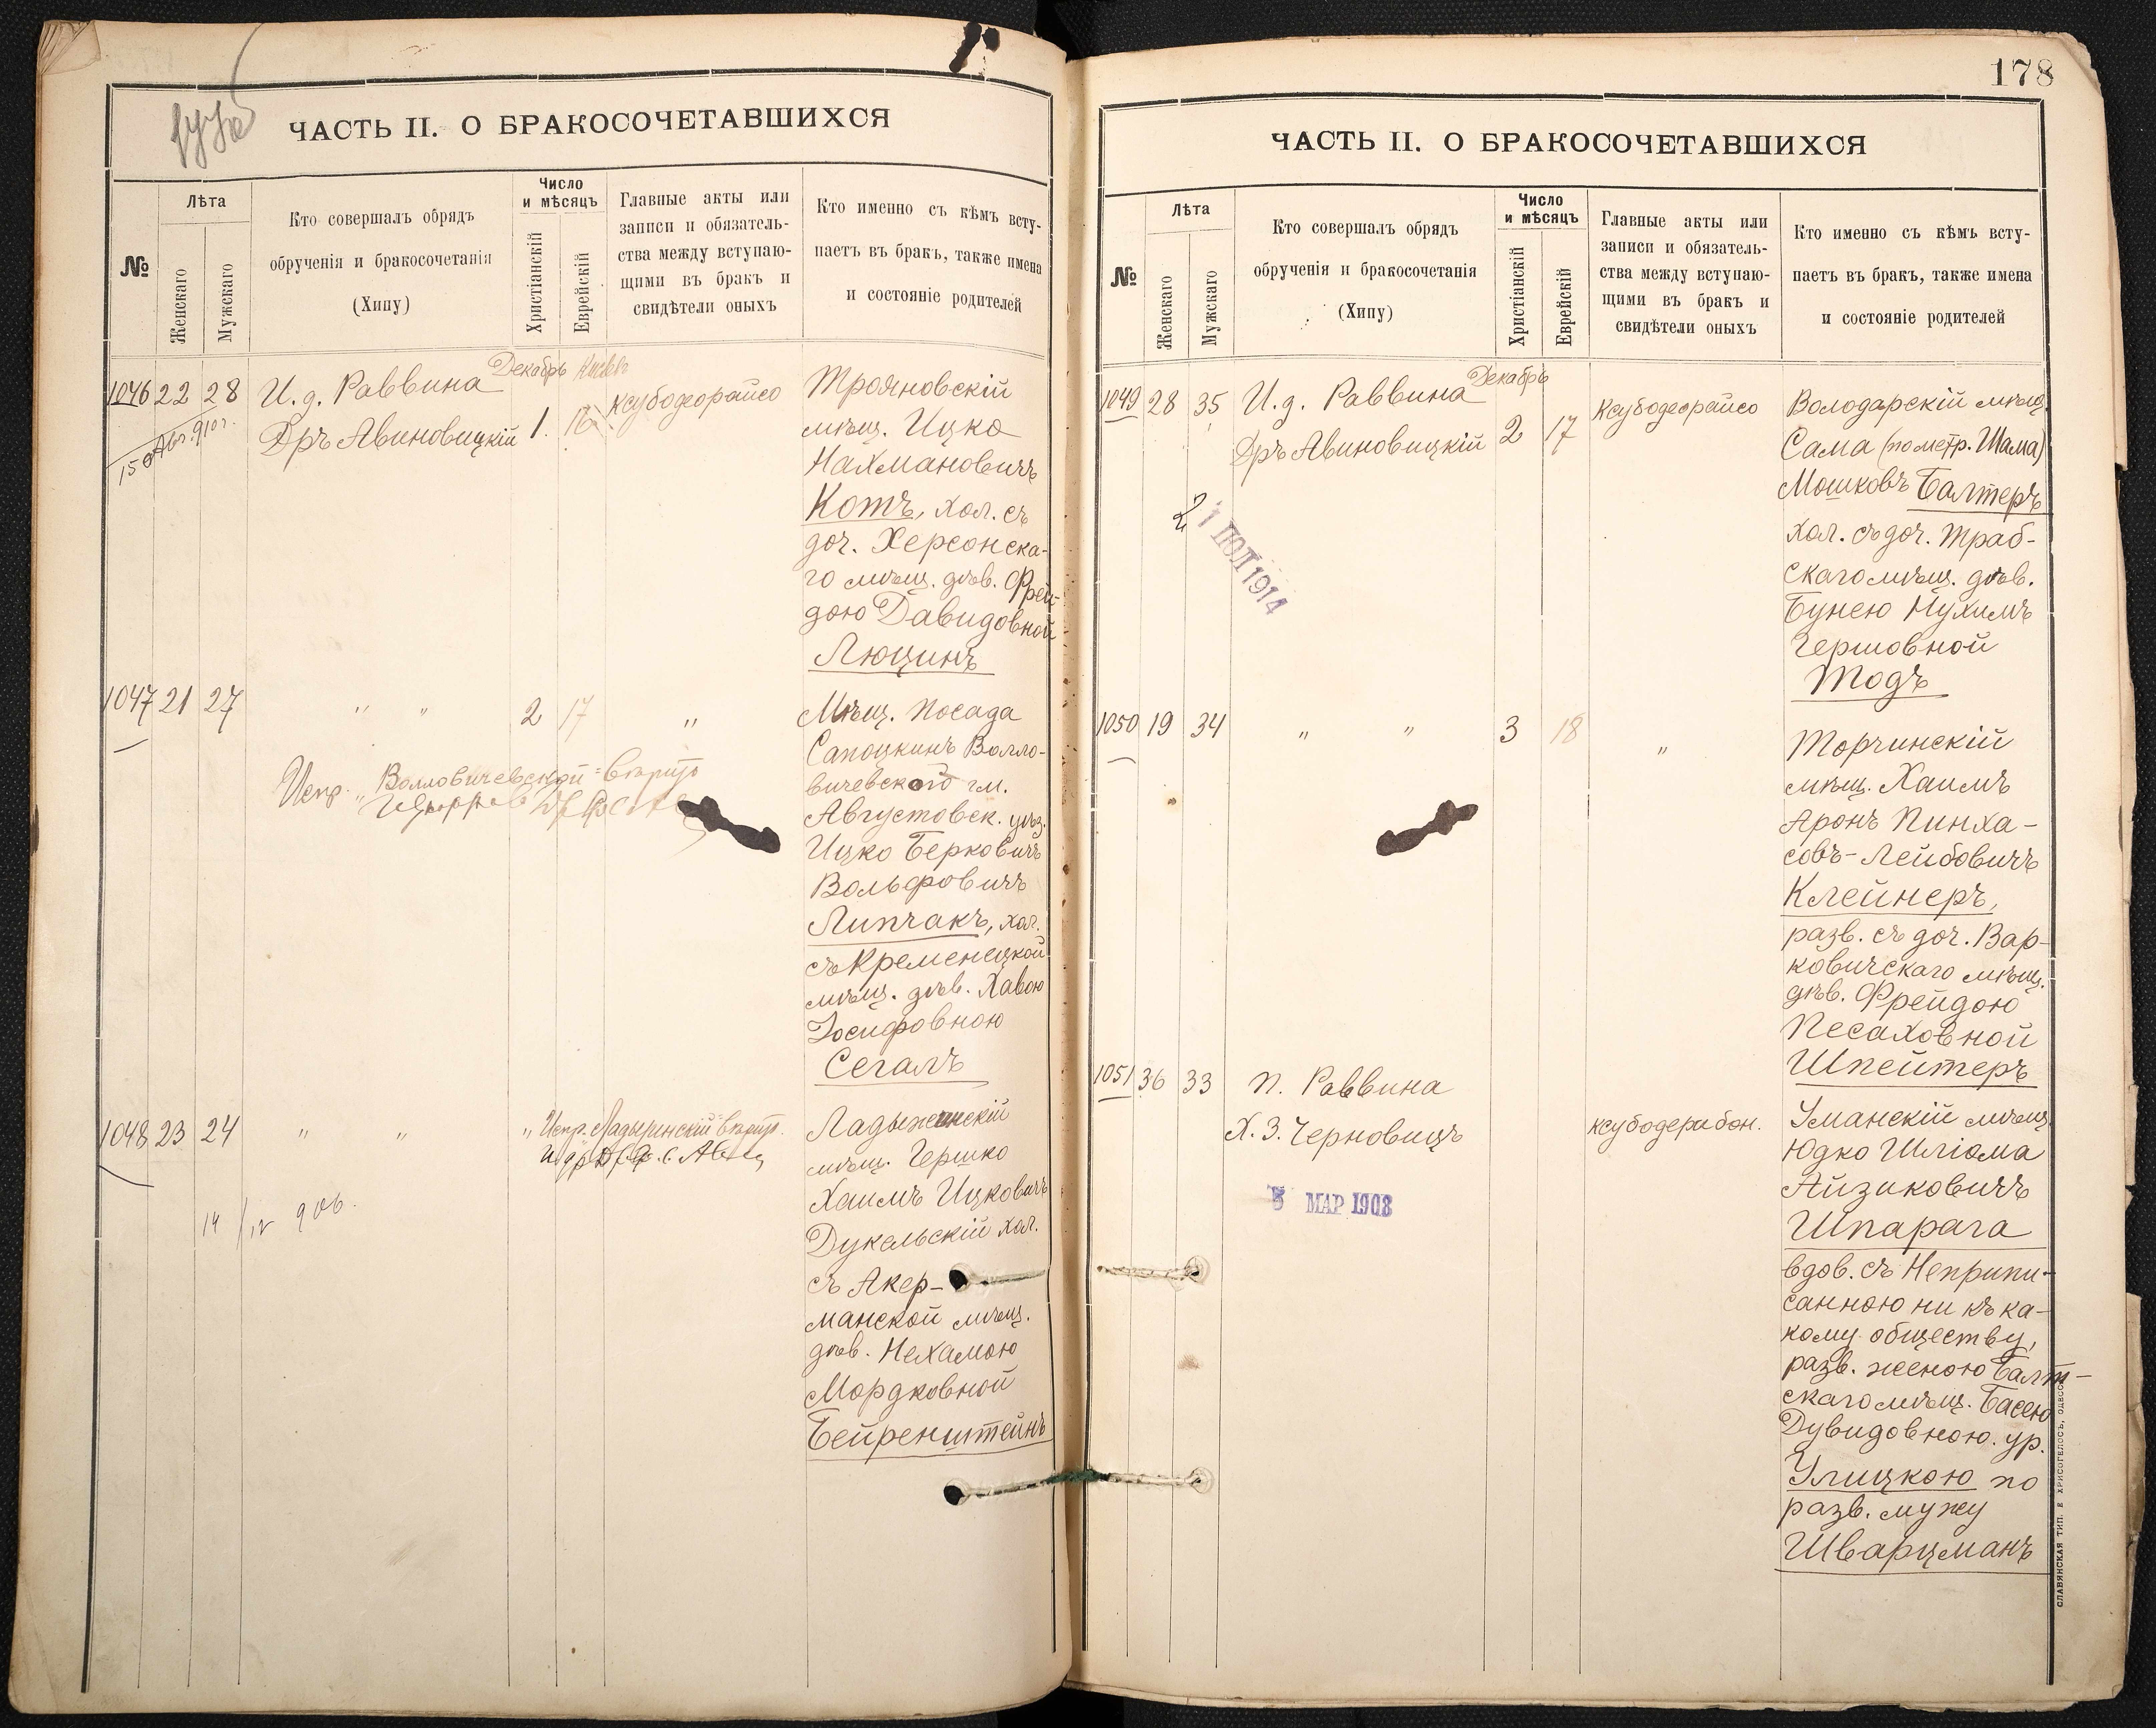 ЧАСТЬ II. О БРАКОСОЧЕТАВШИХСЯ
№
Лѣта
Женскаго
Мужскаго
Кто совершалъ обрядъ
обрученія и бракосочетанія
(Хипу)
Число
и мѣсяцъ
Христіанскій
Еврейскій
Главные акты или
записи и обязатель-
ства между вступаю-
щими въ бракъ и
свидѣтели оныхъ
Кто именно съ кѣмъ всту-
паетъ въ бракъ, также имена
и состояніе родителей
1046 22 28
И. д. Раввина
Дръ Авиновицкій
Декабрь
1. 16
ксубодеорайсо
Трояновскій
мѣщ. Ицко
Нахмановичъ
Котъ, хол. съ
доч. Херсонска-
го мѣщ. дѣв. Фрей-
дою Давидовной
Люцинъ
1047 21 27
" "
2 17
"
Мѣщ. посада
Сапоцкинъ Волло-
вичевского гм.
Августовск. уѣз.
Ицко Берковичъ
Вольфовичъ
Липчакъ, хол.
съ Кременецкой
мѣщ. дѣв. Хавою
Іосифовною
Сегалъ
Испр. „Волловичевской"
1048 23 24
" "
"
Испр. „Ладыжинскій"
14/12 906.
Ладыжинскій
мѣщ. Гершко
Хаимъ Ицковичъ
Дукельскій хол.
съ Акер-
манской мѣщ.
дѣв. Нехамою
Мордковной
Бейренштейнъ
178
ЧАСТЬ II. О БРАКОСОЧЕТАВШИХСЯ
№
Лѣта
Женскаго
Мужскаго
Кто совершалъ обрядъ
обрученія и бракосочетанія
(Хипу)
Число
и мѣсяцъ
Христіанскій
Еврейскій
Главные акты или
записи и обязатель-
ства между вступаю-
щими въ бракъ и
свидѣтели оныхъ
Кто именно съ кѣмъ всту-
паетъ въ бракъ, также имена
и состояніе родителей
1049 28 35
И. д. Раввина
Дръ Авиновицкій
Декабрь
2 17
Ксубодеорайсо
Володарскій мѣщ.
Сама (по метр. Шама)
Мошковъ Балтеръ
хол. съ доч. Траб-
скаго мѣщ. дѣв.
Бунею Нухимъ
Гершовной
Тодъ
1914
1050 19 34
" "
3 18
"
Торчинскій
мѣщ. Хаимъ
Аронъ Пинха-
совъ-Лейбовичъ
Клейнеръ,
разв. съ доч. Вар-
ковичскаго мѣщ.
дѣв. Фрейдою
Песаховной
Шпейтеръ
1051 36 33
П. Раввина
Х. З. Черновицъ
ксубодерибон.
5 МАР 1908
Уманскій мѣщ.
Юдко Шліома
Айзиковичъ
Шпарага
вдов. съ Неприпи-
санною ни къ ка-
кому обществу,
разв. женою Балт-
скаго мѣщ. Басею
Дувидовною. ур.
Улицкою по
разв. мужу
Шварцманъ
СЛАВЯНСКАЯ ТИП. Е. ХРИСОГЕЛОСЪ, ОДЕССА